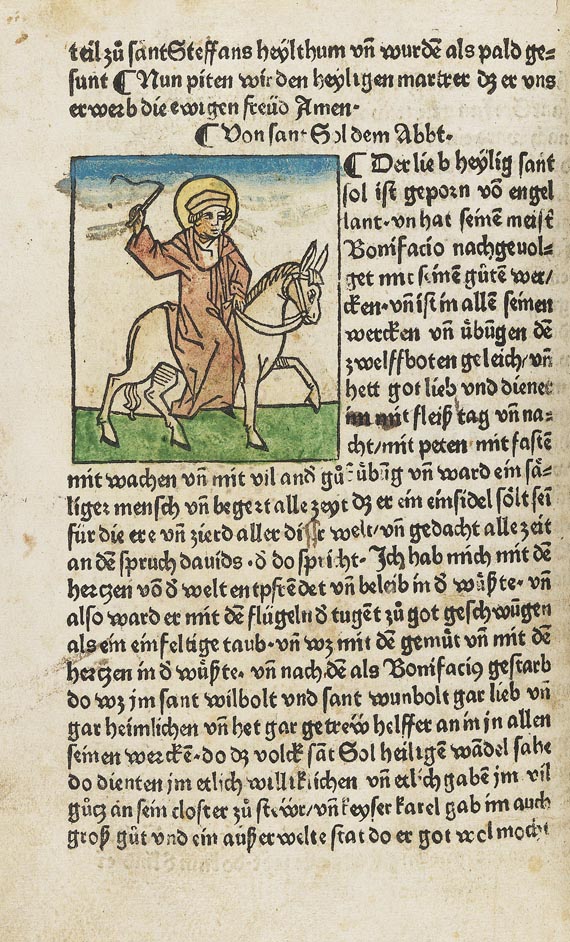 teil zů sant Steffans heÿlthum vn̄ wurdē als pald ge=
sunt ¶ Nun piten wir den heyligen martrer dz er vns
erwerb die ewigen freüd Amen.
¶ Von sant Sol dem Abbt.
¶ Der lieb heÿlig sant
sol ist geporn vō engel
lant. vn̄ hat seinē meist̄
Bonifacio nachgeuol=
get mit seinē gůtē wer/
cken. vn̄ ist in allē seinen
wercken vn̄ ůbūgen dē
zwelffboten geleich/ vn̄
hett got lieb vnd dienet
im mit fleiß tag vn̄ na=
cht/ mit peten mit fastē
mit wachen vn̄ mit vil and̄ gů̄ ůbūg vn̄ ward ein sä=
liger mensch vn̄ begert alle zeyt dz er ein einsidel sölt sei
für die ere vn̄ zierd aller diser welt/ vn̄ gedacht alle zeit
an dē spruch dauids. d̄ do spricht. Ich hab mich mit dē
hertzen vō d̄ welt entpfrēdet vn̄ beleib in d̄ wůßte. vn̄
also ward er mit dē flügeln d̄ tugēt zů got geschwūgen
als ein einfeltige taub. vn̄ wz mit dē gemůt vn̄ mit dē
hertzen in d̄ wůßte. vn̄ nach dē als Bonifaciꝰ gestarb
do wz jm sant wilbolt vnd sant wunbolt gar lieb vn̄
gar heimlichen vn̄ het gar getrew helffer an in jn allen
seinen werckē. do dz volck sāt Sol heiligē wādel sahe
do dienten jm etlich williklichen vn̄ etlich gabē jm vil
gůtz an sein closter zů stewr/ vn̄ keyser karel gab im auch
groß gůt vnd ein außerwelte stat do er got wol mocht